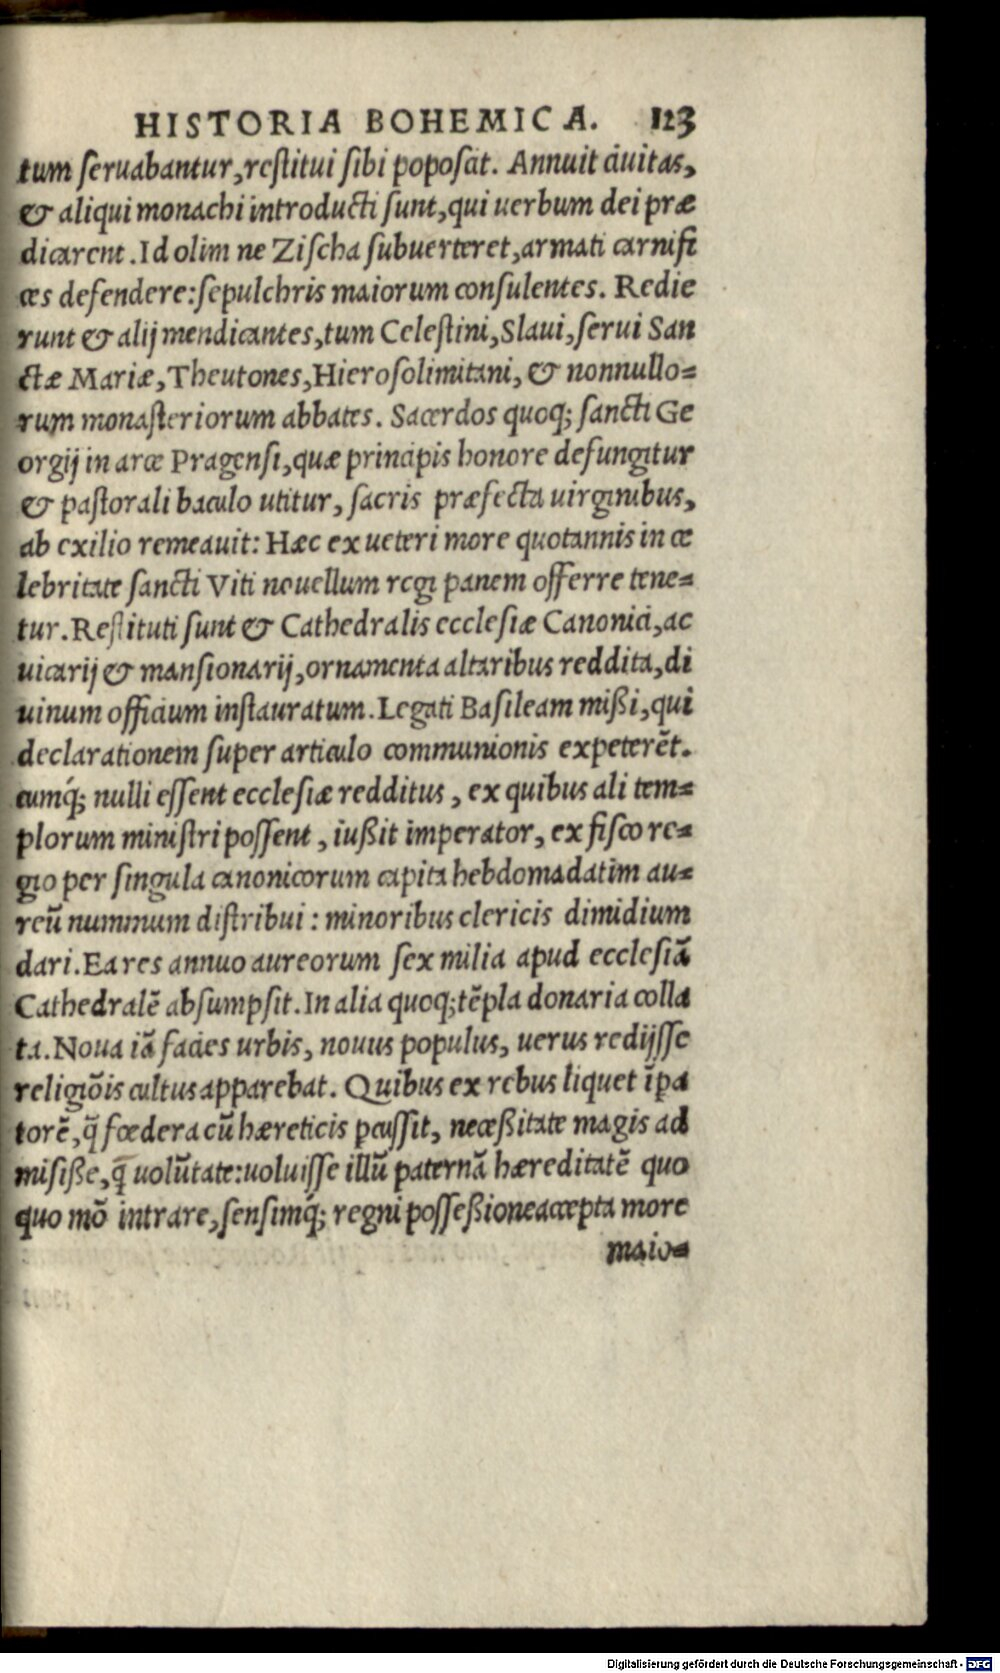 HISTORIA BOHEMICA. 123
tum ſeruabantur, reſtitui ſibi popoſcit. Annuit ciuitas,
& aliqui monachi introducti ſunt, qui uerbum dei præ
dicarent. Id olim ne Ziſcha ſubuerteret, armati carnifi
ces defendere: ſepulchris maiorum conſulentes. Redie
runt & alij mendicantes, tum Celeſtini, Slaui, ſerui San
ctæ Mariæ, Theutones, Hieroſolimitani, & nonnullo=
rum monaſteriorum abbates. Sacerdos quoq; ſancti Ge
orgij in arce Pragenſi, quæ principis honore defungitur
& paſtorali baculo utitur, ſacris præfecta uirginibus,
ab exilio remeauit: Hæc ex ueteri more quotannis in ce
lebritate ſancti Viti nouellum regi panem offerre tene=
tur. Reſtituti ſunt & Cathedralis eccleſiæ Canonici, ac
uicarij & manſionarij, ornamenta altaribus reddita, di
uinum officium inſtauratum. Legati Baſileam mißi, qui
declarationem ſuper articulo communionis expeterēt.
cumq́; nulli eſſent eccleſiæ redditus, ex quibus ali tem=
plorum miniſtri poſſent, iußit imperator, ex fiſco re=
gio per ſingula canonicorum capita hebdomadatim au=
reū nummum diſtribui: minoribus clericis dimidium
dari. Ea res annuo aureorum ſex milia apud eccleſiā
Cathedralē abſumpſit. In alia quoq; tēpla donaria colla
ta. Noua iā facies urbis, nouus populus, uerus redijſſe
religiōis cultus apparebat. Quibus ex rebus liquet īpa
torē, q̄ fœdera cū hæreticis pcuſſit, neceßitate magis ad
miſiße, q̄ uolūtate: uoluiſſe illū paternā hæreditatē quo
quo mō intrare, ſenſimq́; regni poſſeßione accepta more
maio=
Digitalisierung gefördert durch die Deutsche Forschungsgemeinschaft - DFG